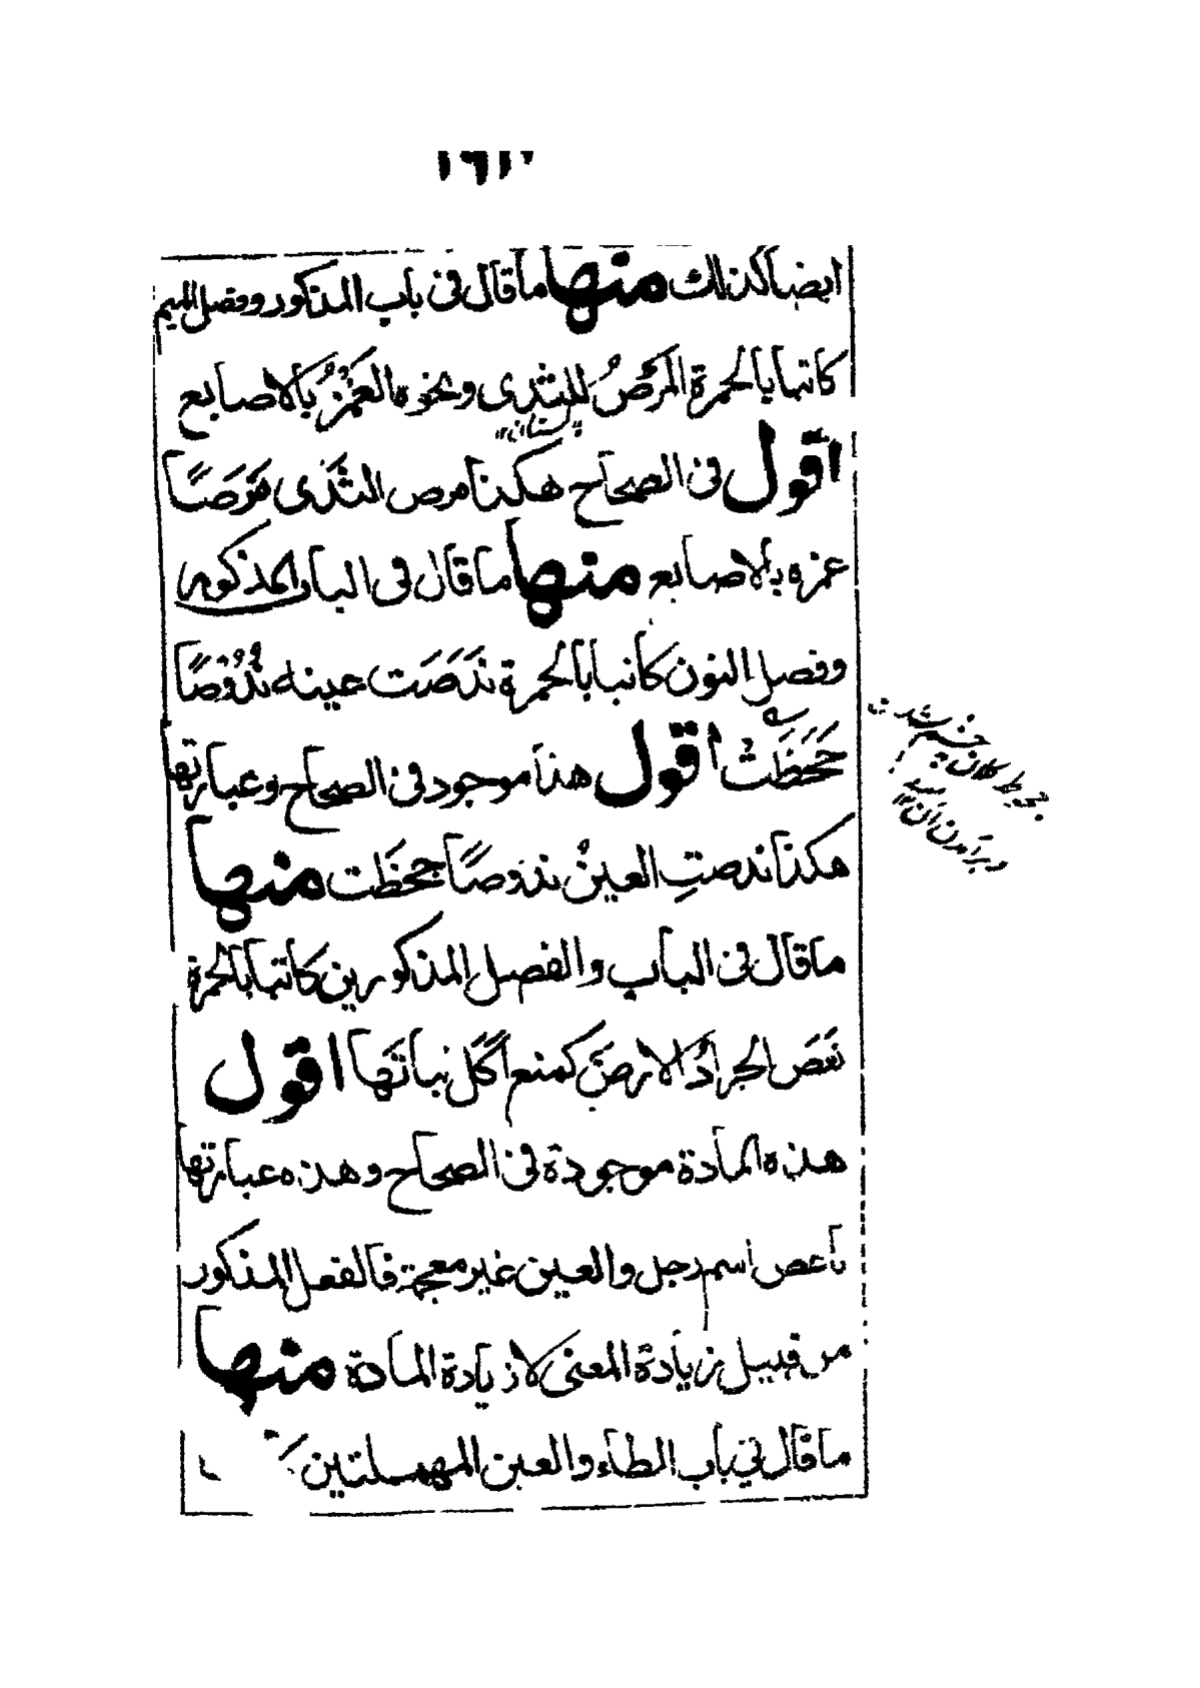 ايضا كذلك منها ما قال فى باب المذكور وفصل الميم
كاتبا بالحمرة المَرْصُ للثدى ونحوه الغَمْزُ بالاصابع
پستان ۱۲
اقول فى الصحاح هكذا مرص الثَدْى مَرَصًا
غمزه بالاصابع منها ما قال فى الباب المذكور
وفصل النون كاتبا بالحمرة نَدَصَت عينه نُدُوصًا
جَحَظَت اقول هذا موجود فى الصحاح وعبارتها
هكذا ندصتِ العينُ ندوصًا جحظَت منها
ما قال فى الباب والفصل المذكورين كاتبا بالحمرة
نَعَصَ الجرادُ الارضَ كمنع اكَل نباتَها اقول
هذه المادة موجودة فى الصحاح وهذه عبارتها
ناعص اسم رجل والعين غير معجمة فالفعل المذكور
من قبيل زيادة المعنى لا زيادة المادة منها
ما قال في باب الطاء والعين المهملتين
كلان چشم شدن
وبرآمدن آن ۱۲